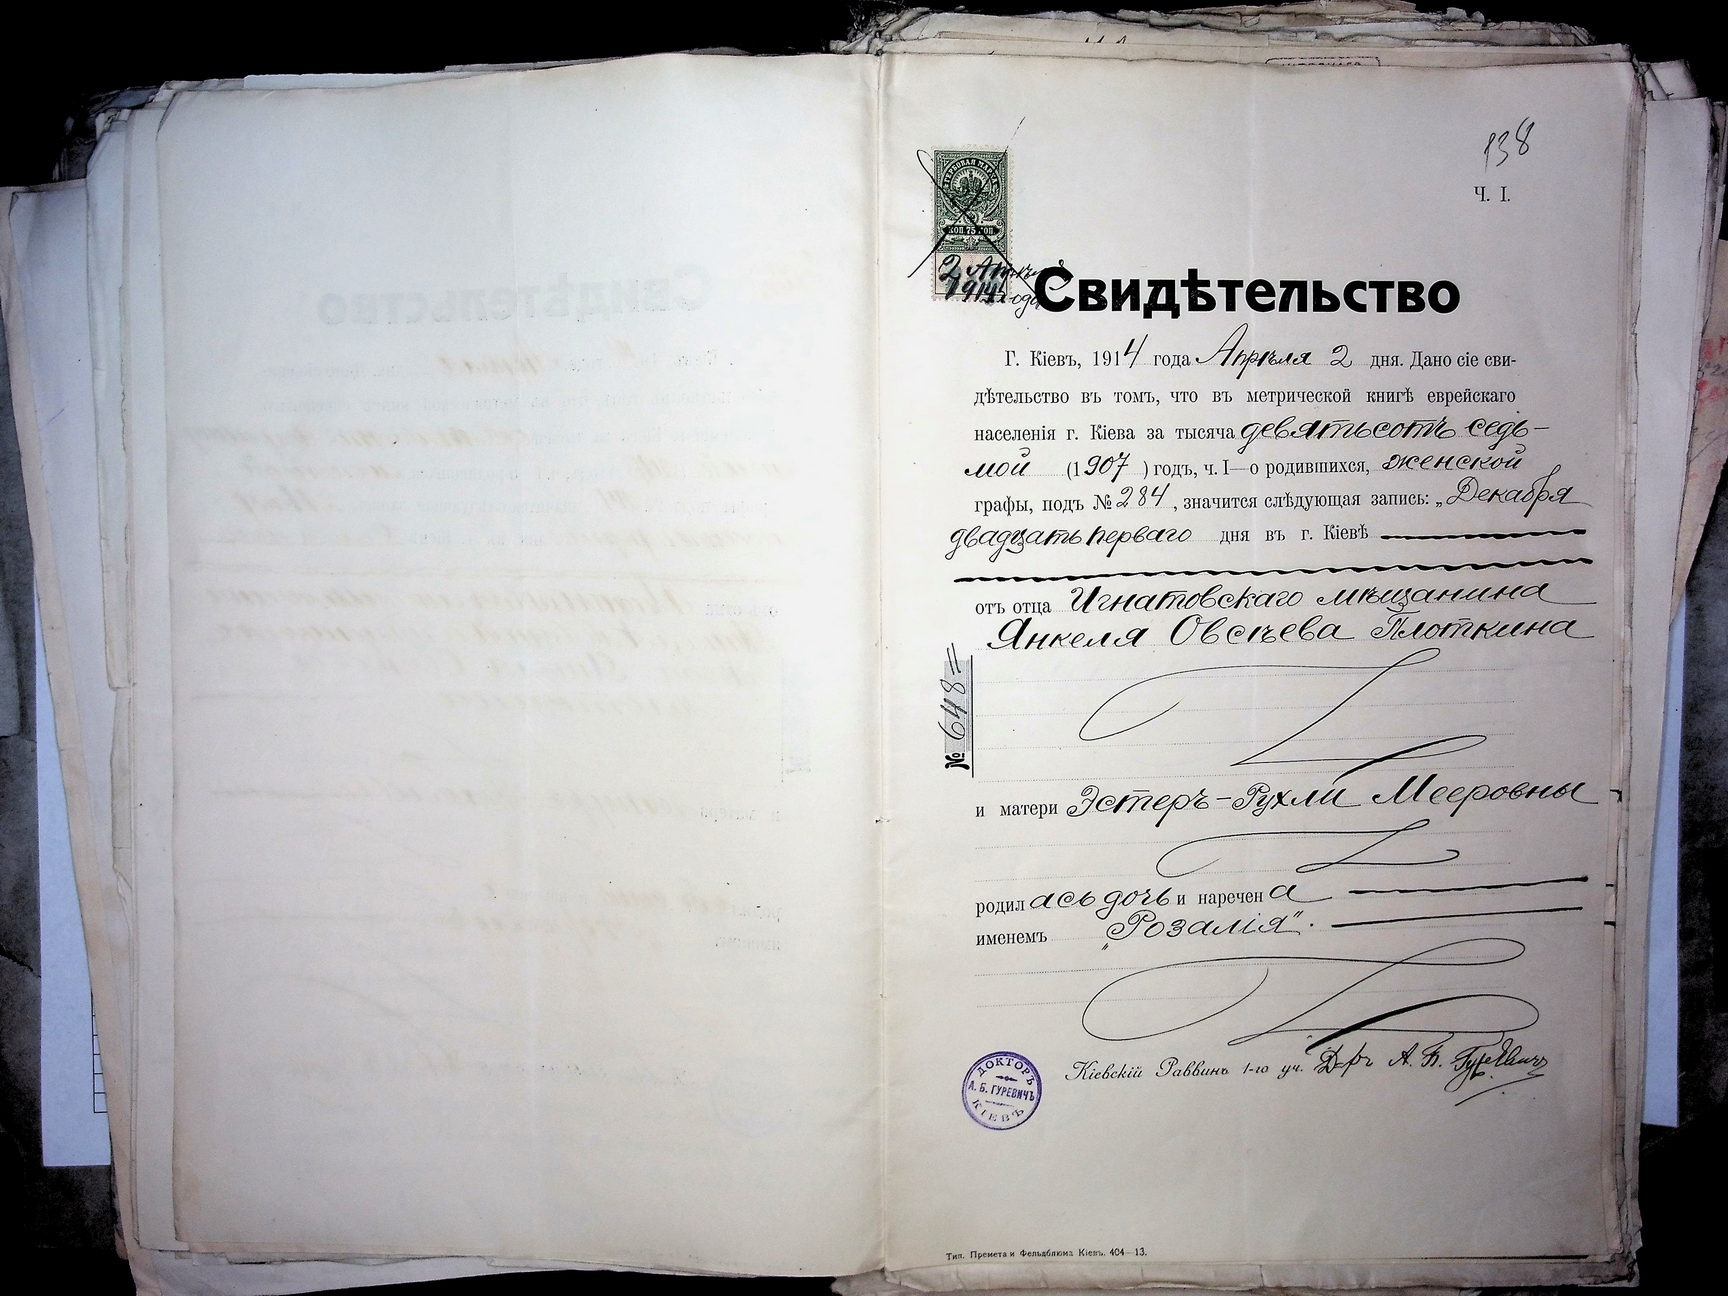 138
Ч. I.
ГЕРБОВАЯ МАРКА
КОП. 75 КОП.
2 Апрѣля
1914 года
Свидѣтельство
Г. Кіевъ, 1914 года Апрѣля 2 дня. Дано сіе сви-
дѣтельство въ томъ, что въ метрической книгѣ еврейскаго
населенія г. Кіева за тысяча девятьсотъ седь-
мой (1907) годъ, ч. I—о родившихся, женской
графы, подъ № 284, значится слѣдующая запись: „Декабря
двадцать перваго дня въ г. Кіевѣ
отъ отца Игнатовскаго мѣщанина
Янкеля Овсѣева Плоткина
№ 648=
и матери Эстеръ-Рухли Мееровны
родилась дочь и наречена
именемъ „Розалія".
Кіевскій Раввинъ 1-го уч. Д-ръ А. Б. Гуревичъ
ДОКТОРЪ
А. Б. ГУРЕВИЧЪ
КІЕВЪ
Тип. Премета и Фельдблюма Кіевъ. 404—13.